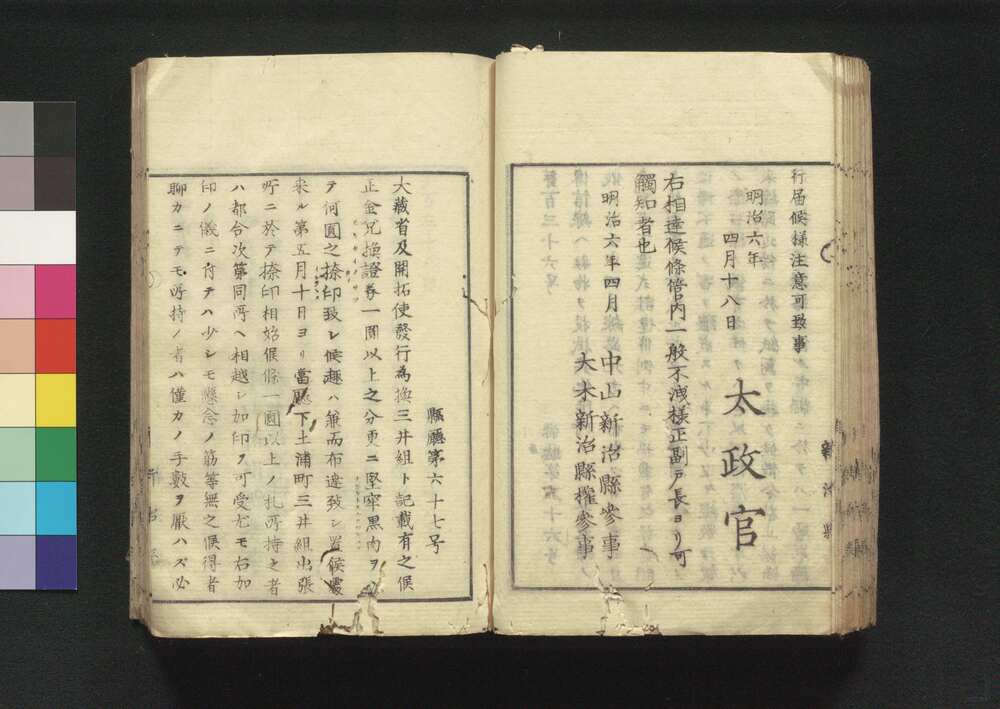 行届候様注意可致事
明治六年
四月十八日
太政官
右相達候條管内一般不洩様正副戸長ヨリ可
觸知者也
明治六年四月
中山新治縣參事
大木新治縣權參事
縣廳第六十七号
大藏省及開拓使發行為換三井組ト記載有之候
正金兌換證券一圓以上之分更ニ堅牢黒肉ヲ
テ何圓之捺印致シ候趣ハ兼而布達致シ置候處
来ル第五月十日ヨリ當廳下土浦町三井組出張
所ニ於テ捺印相始候條一圓以上ノ札所持之者
ハ都合次第同所ヘ相越シ加印ヲ可受尤モ右加
印ノ儀ニ付テハ少シモ懸念ノ筋等無之候得者
聊カニテモ所持ノ者ハ僅カノ手數ヲ厭ハズ必